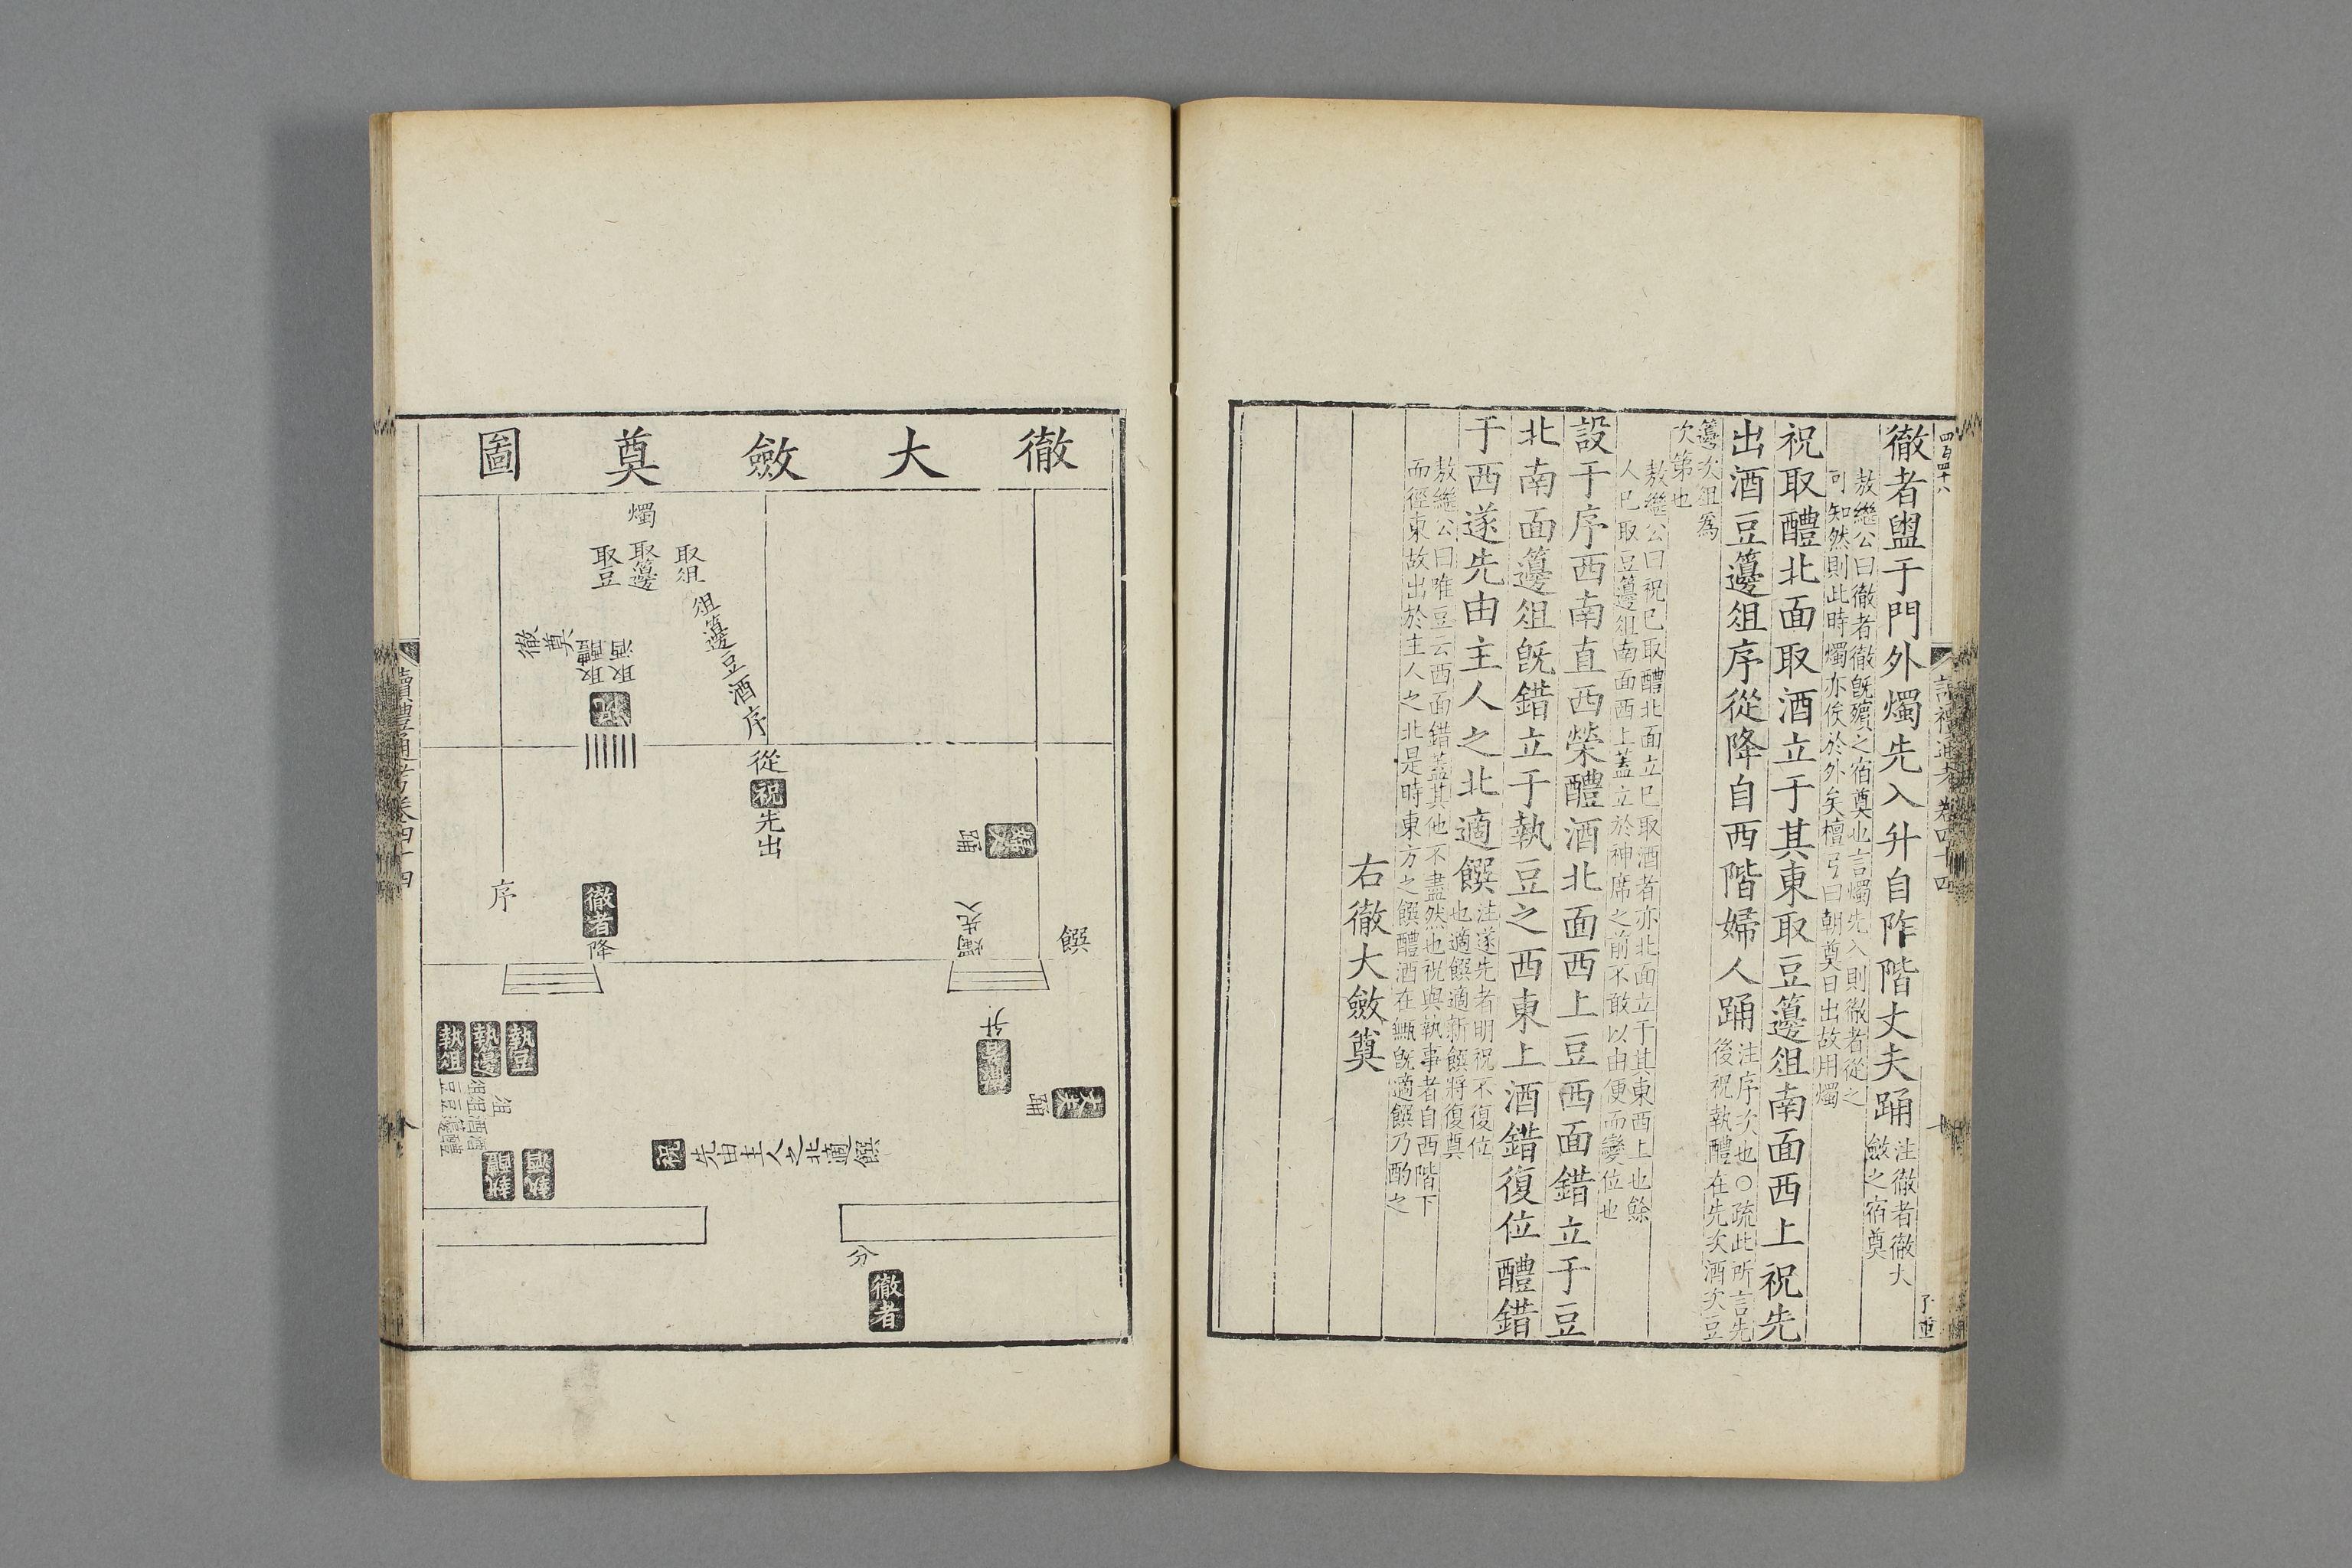 四百四十八
讀禮通考 卷四十四
徹者盥于門外燭先入升自阼階丈夫踊
注徹者徹大
斂之宿奠
敖繼公曰徹者徹旣殯之宿奠也言燭先入則徹者從之
可知然則此時燭亦俟於外矣檀弓曰朝奠日出故用燭
祝取醴北面取酒立于其東取豆籩俎南面西上祝先
出酒豆籩俎序從降自西階婦人踊
注序次也○疏此所言先
後祝執醴在先次酒次豆
籩次俎爲
次第也
敖繼公曰祝巳取醴北面立巳取酒者亦北面立于其東西上也餘
人巳取豆籩俎南面西上蓋立於神席之前不敢以由便而變位也
設于序西南直西榮醴酒北面西上豆西面錯立于豆
北南面籩俎旣錯立于執豆之西東上酒錯復位醴錯
于西遂先由主人之北適饌
注遂先者明祝不復位
也適饌適新饌將復奠
敖繼公曰唯豆云西面錯蓋其他不盡然也祝與執事者自西階下
而徑東故出於主人之北是時東方之饌醴酒在甒旣適饌乃酌之
右徹大斂奠
徹大斂奠圖
燭
取俎
取籩
取豆
俎籩豆酒序
從祝先出
徹奠
取酒
取醴
祝
徹者降
序
婦人
踊
燭先入
饌
升
徹者
丈夫
踊
執豆
執籩
執俎
俎
俎俎酒酒
豆豆籩醴
執酒
執醴
祝先由主人之北適饌
分
徹者
讀禮通考卷四十四